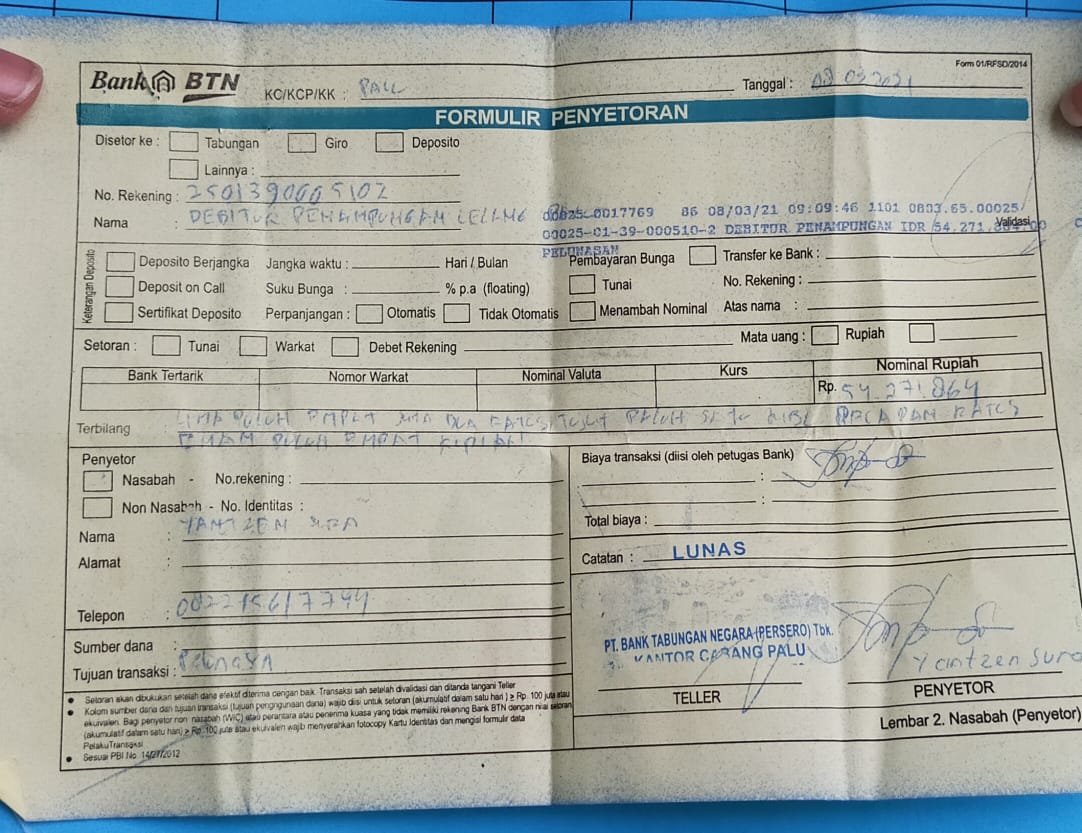 Form 01/RFSD/2014
Bank BTN
KC/KCP/KK : PALU
Tanggal : 08 03 2021
FORMULIR PENYETORAN
Disetor ke : Tabungan Giro Deposito
Lainnya :
No. Rekening : 2501390005102
Nama DEBITUR PENAMPUNGAN LELANG
0017769 86 08/03/21 09:09:46 1101 0803.65.00025
Validasi
00025-01-39-000510-2 DEBITUR PENAMPUNGAN IDR 54.271.
PELUNASAN
Keterangan Deposito
Deposito Berjangka Jangka waktu : Hari / Bulan Pembayaran Bunga Transfer ke Bank :
Deposit on Call Suku Bunga : % p.a (floating) Tunai No. Rekening :
Sertifikat Deposito Perpanjangan : Otomatis Tidak Otomatis Menambah Nominal Atas nama :
Setoran : Tunai Warkat Debet Rekening Mata uang : Rupiah
Bank Tertarik Nomor Warkat Nominal Valuta Kurs Nominal Rupiah
Rp. 54.271.864
Terbilang : LIMA PULUH EMPAT JUTA DUA RATUS TUJUH PULUH SATU RIBU DELAPAN RATUS
ENAM PULUH EMPAT RUPIAH
Penyetor
Nasabah - No.rekening :
Non Nasabah - No. Identitas :
Nama : YANTZEN
Alamat :
Telepon :
Sumber dana :
Tujuan transaksi :
Biaya transaksi (diisi oleh petugas Bank)
:
:
Total biaya :
Catatan : LUNAS
PT. BANK TABUNGAN NEGARA (PERSERO) Tbk.
KANTOR CABANG PALU
TELLER
Yantzen Sura
PENYETOR
• Setoran akan dibukukan setelah dana efektif diterima dengan baik. Transaksi sah setelah divalidasi dan ditanda tangani Teller
• Kolom sumber dana dan tujuan transaksi (tujuan penggunaan dana) wajib diisi untuk setoran (akumulatif dalam satu hari ) ≥ Rp. 100 juta atau
ekuivalen. Bagi penyetor non nasabah (WIC) atau perantara atau penerima kuasa yang tidak memiliki rekening Bank BTN dengan nilai setoran
(akumulatif dalam satu hari) ≥ Rp. 100 juta atau ekuivalen wajib menyerahkan fotocopy Kartu Identitas dan mengisi formulir data
Pelaku Transaksi
• Sesuai PBI No. 14/27/2012
Lembar 2. Nasabah (Penyetor)